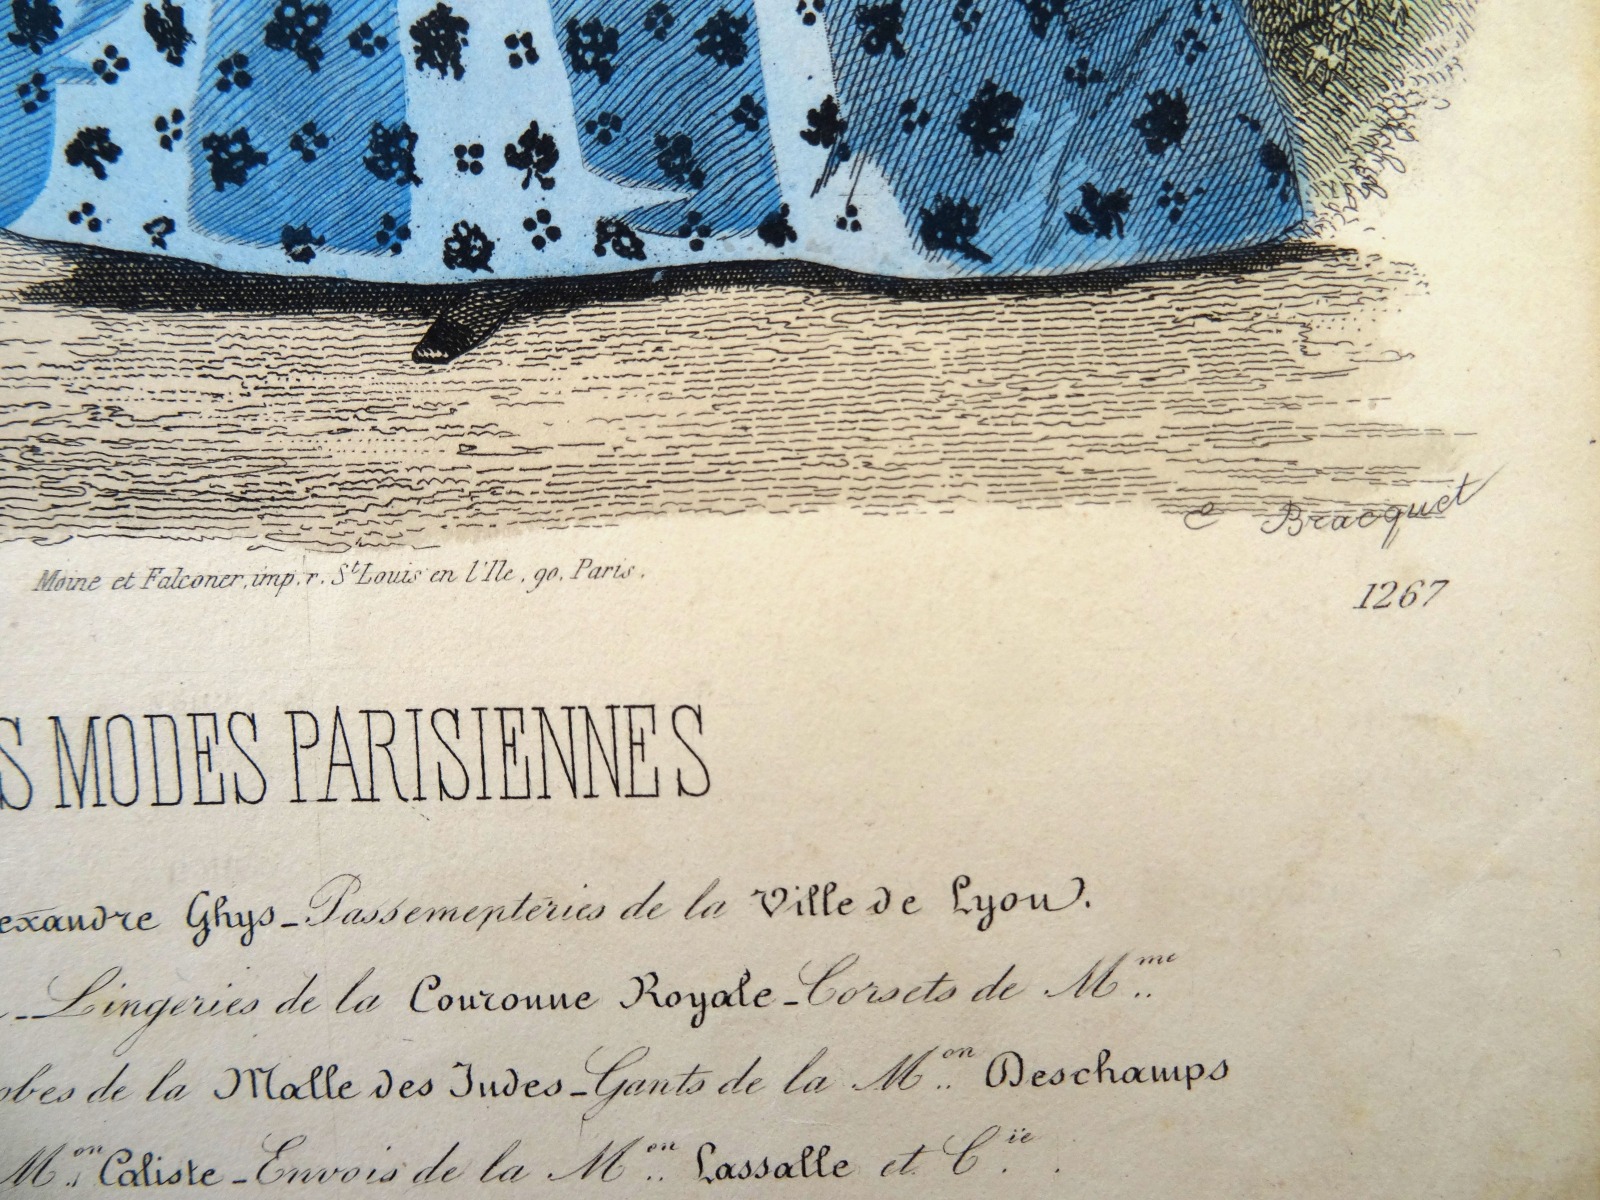 C Bracquet
Moine et Falconer, imp. r. St Louis en l'Ile, 90, Paris.
1267
S MODES PARISIENNES
exandre Ghys_Passementeries de la Ville de Lyon.
_Lingeries de la Couronne Royale_Corsets de Mme..
obes de la Malle des Indes_Gants de la Mon.. Deschamps
Mon.. Caliste_Envois de la Mon.. Lassalle et Cie.